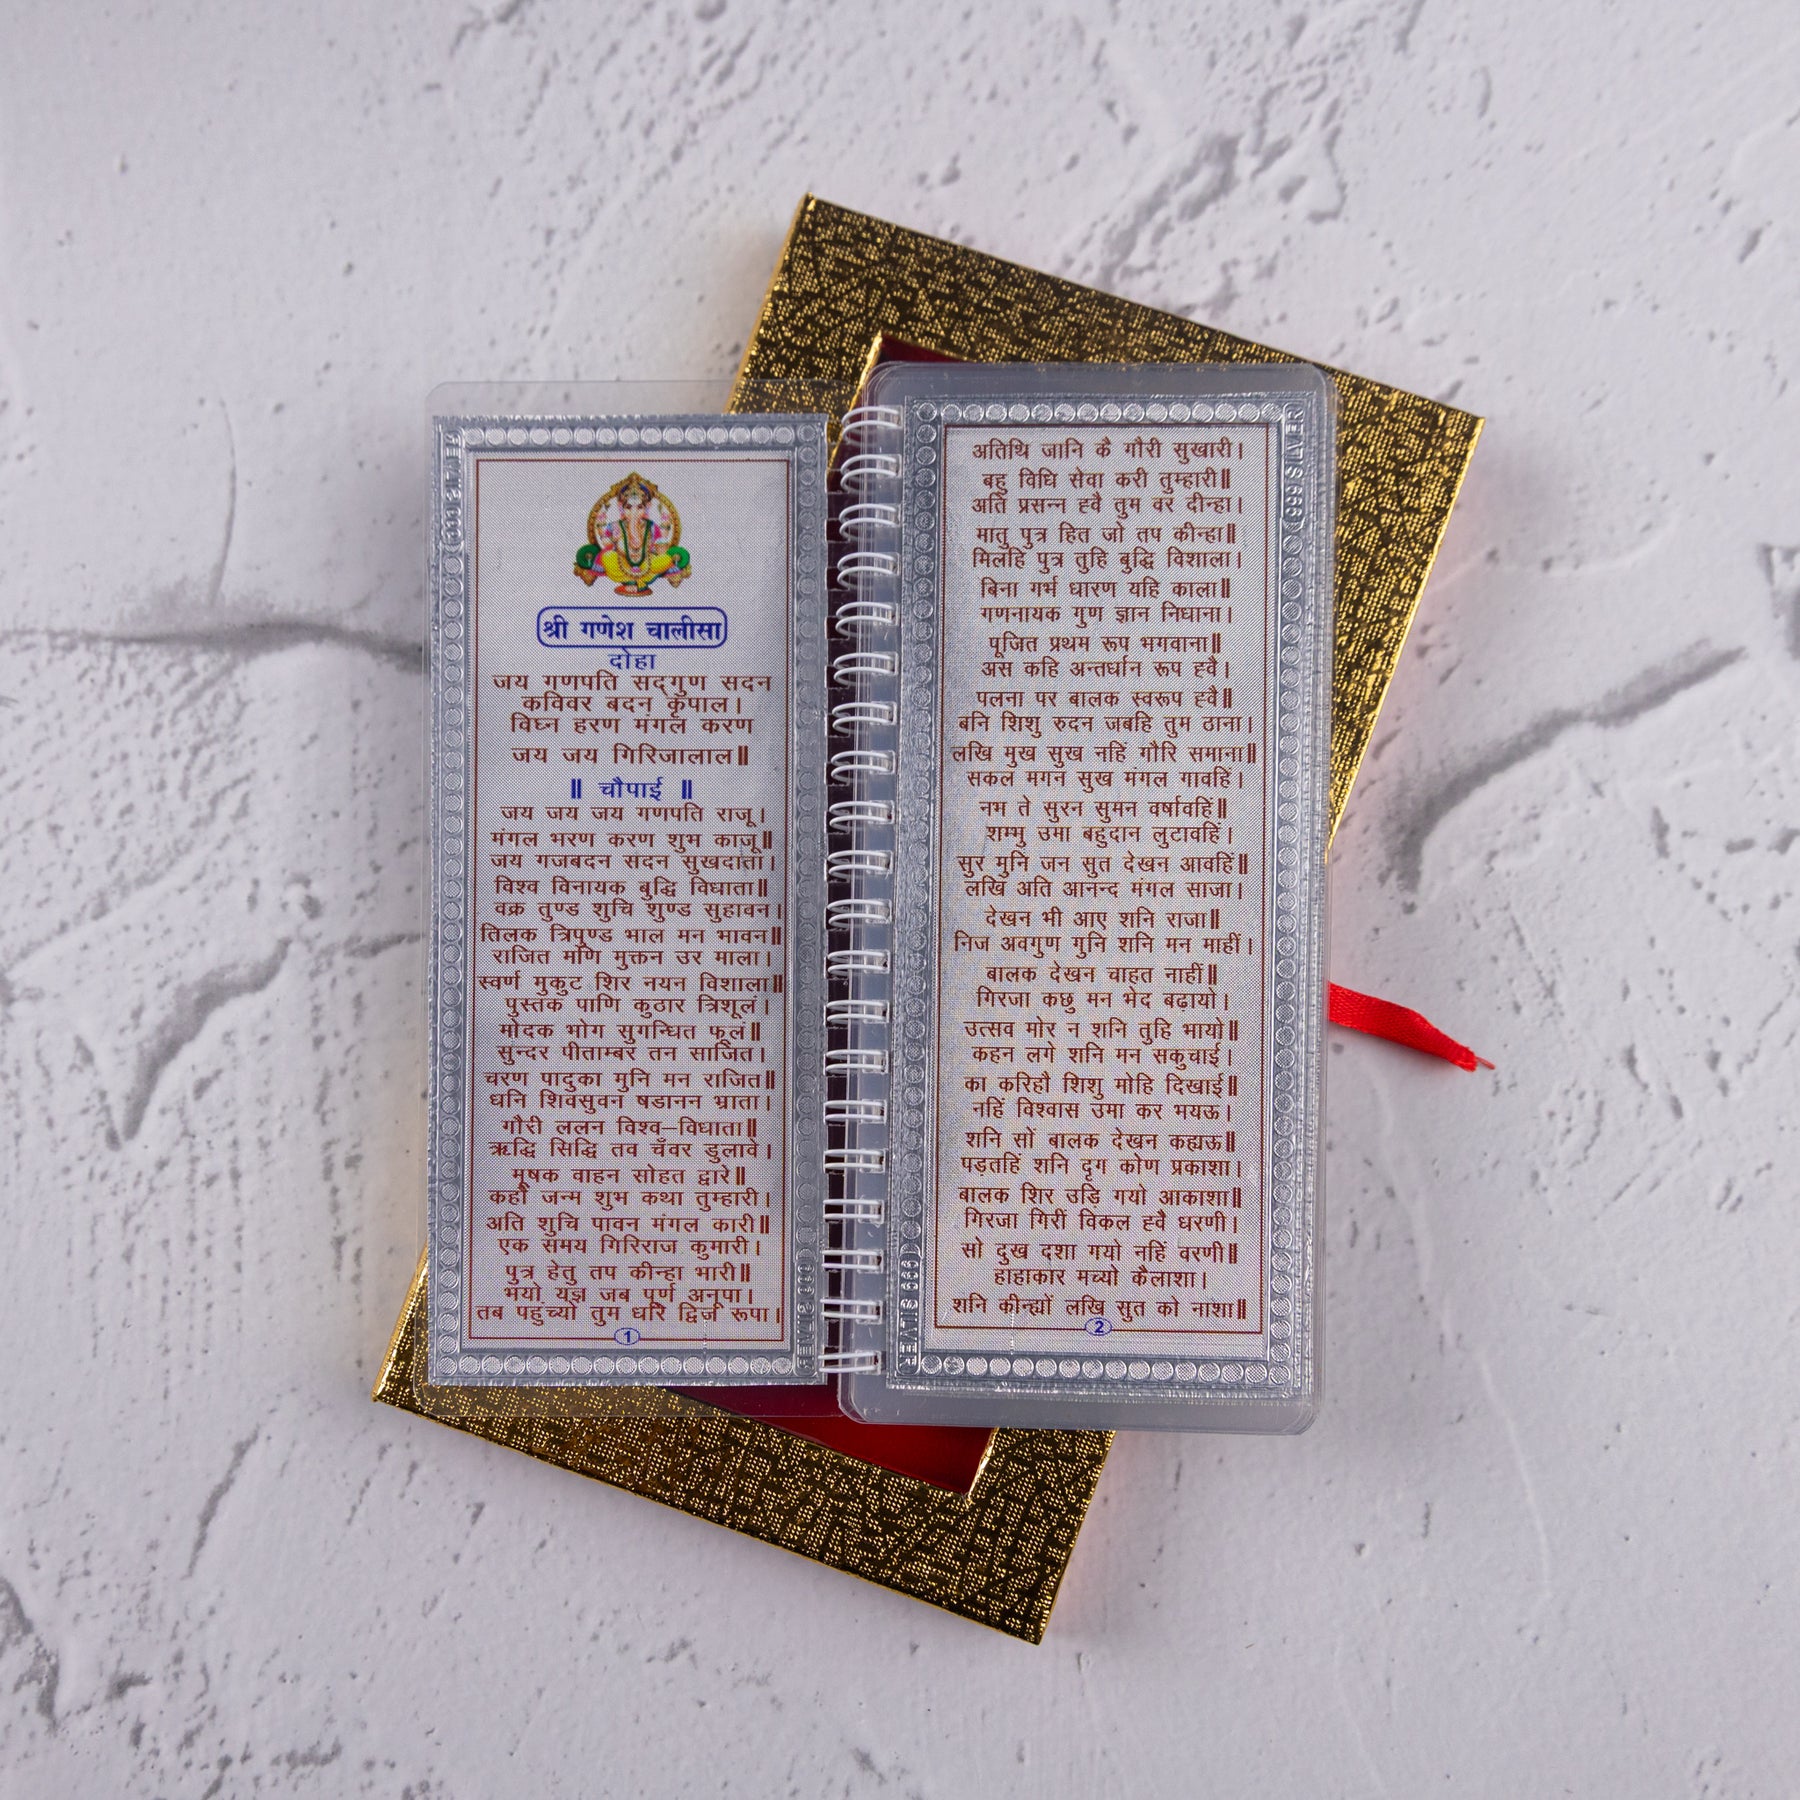 श्री गणेश चालीसा
दोहा
जय गणपति सद्गुण सदन
कविवर बदन कृपाल।
विघ्न हरण मंगल करण
जय जय गिरिजालाल॥
॥ चौपाई ॥
जय जय जय गणपति राजू।
मंगल भरण करण शुभ काजू॥
जय गजबदन सदन सुखदाता।
विश्व विनायक बुद्धि विधाता॥
वक्र तुण्ड शुचि शुण्ड सुहावन।
तिलक त्रिपुण्ड भाल मन भावन॥
राजित मणि मुक्तन उर माला।
स्वर्ण मुकुट शिर नयन विशाला॥
पुस्तक पाणि कुठार त्रिशूलं।
मोदक भोग सुगन्धित फूलं॥
सुन्दर पीताम्बर तन साजित।
चरण पादुका मुनि मन राजित॥
धनि शिवसुवन षडानन भ्राता।
गौरी ललन विश्व-विधाता॥
ऋद्धि सिद्धि तव चँवर डुलावे।
मूषक वाहन सोहत द्वारे॥
कहौं जन्म शुभ कथा तुम्हारी।
अति शुचि पावन मंगल कारी॥
एक समय गिरिराज कुमारी।
पुत्र हेतु तप कीन्हा भारी॥
भयो यज्ञ जब पूर्ण अनूपा।
तब पहुंच्यो तुम धरि द्विज रूपा।
1
999 SILVER
अतिथि जानि कै गौरी सुखारी।
बहु विधि सेवा करी तुम्हारी॥
अति प्रसन्न ह्वै तुम वर दीन्हा।
मातु पुत्र हित जो तप कीन्हा॥
मिलहि पुत्र तुहि बुद्धि विशाला।
बिना गर्भ धारण यहि काला॥
गणनायक गुण ज्ञान निधाना।
पूजित प्रथम रूप भगवाना॥
अस कहि अन्तर्धान रूप ह्वै।
पलना पर बालक स्वरूप ह्वै॥
बनि शिशु रुदन जबहि तुम ठाना।
लखि मुख सुख नहिं गौरि समाना॥
सकल मगन सुख मंगल गावहिं।
नभ ते सुरन सुमन वर्षावहिं॥
शम्भु उमा बहुदान लुटावहिं।
सुर मुनि जन सुत देखन आवहिं॥
लखि अति आनन्द मंगल साजा।
देखन भी आए शनि राजा॥
निज अवगुण गुनि शनि मन माहीं।
बालक देखन चाहत नाहीं॥
गिरजा कछु मन भेद बढ़ायो।
उत्सव मोर न शनि तुहि भायो॥
कहन लगे शनि मन सकुचाई।
का करिहौ शिशु मोहि दिखाई॥
नहिं विश्वास उमा कर भयऊ।
शनि सों बालक देखन कह्यऊ॥
पड़तहिं शनि दृग कोण प्रकाशा।
बालक शिर उड़ि गयो आकाशा॥
गिरजा गिरीं विकल ह्वै धरणी।
सो दुख दशा गयो नहिं वरणी॥
हाहाकार मच्यो कैलाशा।
शनि कीन्ह्यों लखि सुत को नाशा॥
2
999 SILVER